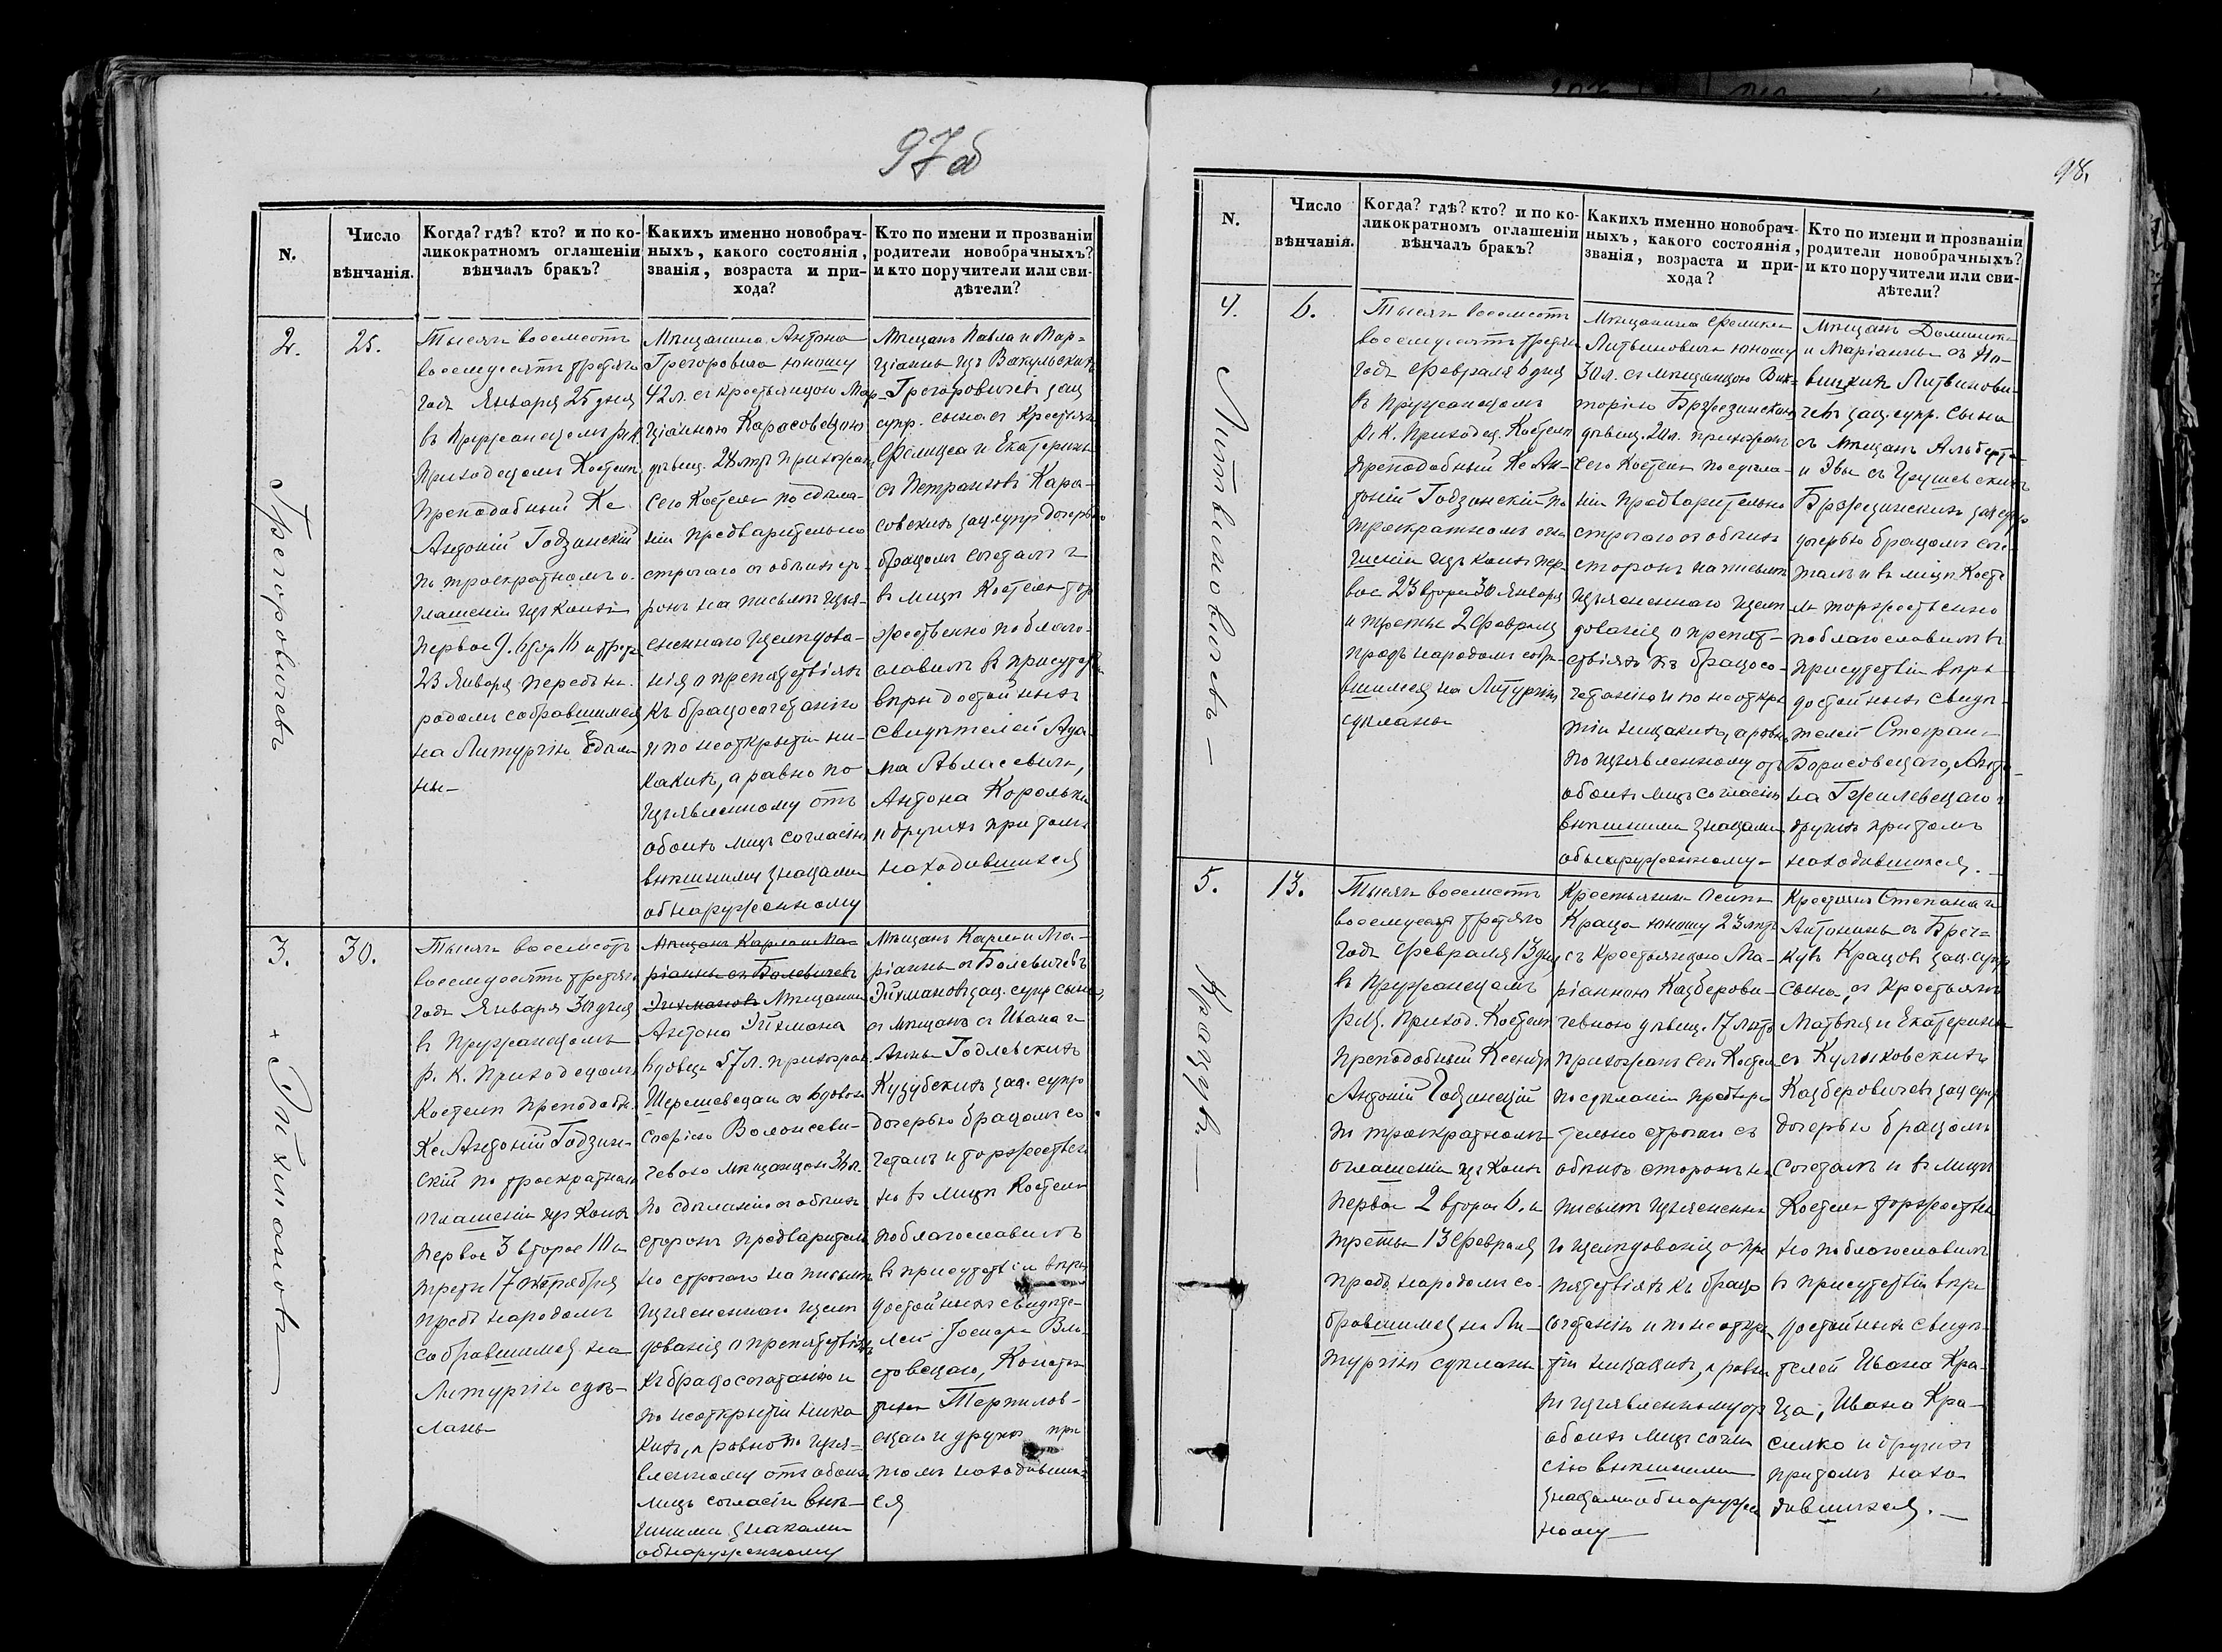 97б
N.
Число
вѣнчанія.
Когда? гдѣ? кто? и по ко-
ликократномъ оглашеніи
вѣнчалъ бракъ?
Какихъ именно новобрач-
ныхъ, какого состоянія,
званія, возраста и при-
хода?
Кто по имени и прозванію
родители новобрачныхъ?
и кто поручители или сви-
дѣтели?
2.
Грегоровичевъ
25.
Тысяча восемсотъ
восемдесятъ третьяго
года Января 25 дня
въ Пружанскомъ Р. К.
Приходскомъ Костелѣ
Преподобный Кс
Антоній Годзинскій
по троекратномъ о-
глашеніи изъ коихъ
первое 9. втор 16 и трет
23 Января передъ на-
родомъ собравшимся
на Литургію сдѣла-
ны
Мѣщанина Антона
Грегоровича юношу
42 л. съ крестьянкою Мар-
ціанною Карасовскою
дѣвиц. 28 лѣтъ прихожан
сего Костела по сдѣла-
ніи предварительно
строгаго съ обѣихъ сто-
ронъ на письмѣ изъя-
сненнаго изслѣдова-
нія о препятствіяхъ
къ бракосочетанію
и по неоткрытіи ни-
какихъ, а равно по
изъявленному отъ
обоихъ лицъ согласію
внѣшними знаками
обнаруженному
Мѣщанъ Павла и Мар-
ціанны изъ Вакульскихъ
Грегоровичевъ зак
супр. сына съ Крестьянъ
Феликса и Екатерины
съ Петраковъ Кара-
совскихъ зак супр дочерью
бракомъ сочеталъ и
въ лицѣ Костела тор
жественно поблаго-
славилъ въ присутств
вѣры достойныхъ
свидѣтелей Ада-
ма Авласевича,
Антона Королька
и другихъ при томъ
находившихся
3.
Эйхмановъ
30.
Тысяча восемсотъ
восемдесятъ третьяго
года Января 30 дня
въ Пружанскомъ
Р. К. Приходскомъ
Костелѣ Преподобн.
Кс Антоній Годзин-
скій по троекратномъ
оглашеніи изъ коихъ
первое 3 второе 10 и
третье 17
предъ народомъ
собравшимся на
Литургію сдѣ-
ланы
Мѣщанъ Карла и Ма-
ріанны съ Болевичевъ
Эйхмановъ Мѣщанина
Антона Эйхмана
вдовца 57 л. прихожан
Шерешевскаго съ вдовою
Софіею Волонсеви-
чевою мѣщанкою
по сдѣланіи съ обѣихъ
сторонъ предварительн
но строгаго на письмѣ
изъясненнаго изслѣ
дованія о препятствіяхъ
къ бракосочетанію и
по неоткрытіи ника
кихъ, а равно по изъя-
вленному отъ обоихъ
лицъ согласію внѣ-
шними знаками
обнаруженному
Мѣщанъ Карла и Ма-
ріанны съ Болевичевъ
Эйхмановъ зак. супр сына,
съ мѣщанъ съ Ивана и
Анны Годлевскихъ
Кузубскихъ зак. супр
дочерью бракомъ со
четалъ и торжествен
но въ лицѣ Костела
поблагославилъ
въ присутствіи вѣры
достойныхъ свидѣте-
лей
стовскаго, Констан
тина Терпилов-
скаго и другихъ при
томъ находивших
ся
98.
N.
Число
вѣнчанія.
Когда? гдѣ? кто? и по ко-
ликократномъ оглашеніи
вѣнчалъ бракъ?
Какихъ именно новобрач-
ныхъ, какого состоянія,
званія, возраста и при-
хода?
Кто по имени и прозванію
родители новобрачныхъ?
и кто поручители или сви-
дѣтели?
4.
Литвиновичевъ
6.
Тысяча восемсотъ
восемдесятъ третьяго
года Февраля 6 дня
въ Пружанскомъ
Р. К. Приходск. Костелѣ
Преподобный Кс Ан-
тоній Годзинскій по
троекратномъ огла
шеніи изъ коихъ пер
вое 23 второе 30 Января
и третье 2 Февраля
предъ народомъ собра
вшимся на Литургію
сдѣланы
Мѣщанина Феликса
Литвиновича юношу
30 л. съ мѣщанкою Вик-
торіею Бржезинскою
дѣвиц. 20 л. прихожан
сего Костела по сдѣла-
ніи предварительно
строгаго съ обѣихъ
сторонъ на письмѣ
изъясненнаго изслѣ
дованія о препят-
ствіяхъ къ бракосо-
четанію и по неоткры
тіи никакихъ, а равно
по изъявленному отъ
обоихъ лицъ согласію
внѣшними знаками
обнаруженному
Мѣщанъ Доминика
и Маріанны съ
Литвинови-
чевъ зак. супр. сына
съ мѣщанъ Альберта
и Эвы съ Грушевскихъ
Бржезинскихъ зак супр
дочерью бракомъ соче-
талъ и въ лицѣ Косте
ла торжественно
поблагославилъ въ
присутствіи вѣры
достойныхъ свидѣ-
телей Стефана
Борисовскаго, Анто-
на Гжилевскаго и
другихъ при томъ
находившихся.
5.
Крацевъ
13.
Тысяча восемсотъ
восемдесятъ третьяго
года Февраля 13 дня
въ Пружанскомъ
Р. К. Приход. Костелѣ
Преподобный Ксендзъ
Антоній Годзинскій
по троекратномъ
оглашеніи изъ коихъ
первое 2 второе 6. и
третье 13 Февраля
предъ народомъ со-
бравшимся на Ли-
тургію сдѣланы
Крестьянина Осипа
Краца юношу 23 лѣтъ
съ крестьянкою Ма-
ріанною Казберови-
чевною дѣвиц. 17 лѣтъ
прихожанъ сего Костела
по сдѣланіи предвари
тельно строгаго съ
обѣихъ сторонъ на
письмѣ изъясненна
го изслѣдованія о пре
пятствіяхъ къ брако
сочетанію и по неоткры
тіи никакихъ, а равно
по изъявленному отъ
обоихъ лицъ согла
сію внѣшними
знаками обнаружен
ному
Крестьянъ Степана и
Антонины съ
Крацовъ зак. супр
сына, съ Крестьянъ
Матвѣя и Екатерины
съ Куликовскихъ
Казберовичевъ зак супр
дочерью бракомъ
сочеталъ и въ лицѣ
Костела торжествен
но поблагославилъ
въ присутствіи вѣры
достойныхъ свидѣ-
телей Ивана Кра-
ца, Ивана Кра-
силко и другихъ
при томъ нахо
дившихся.